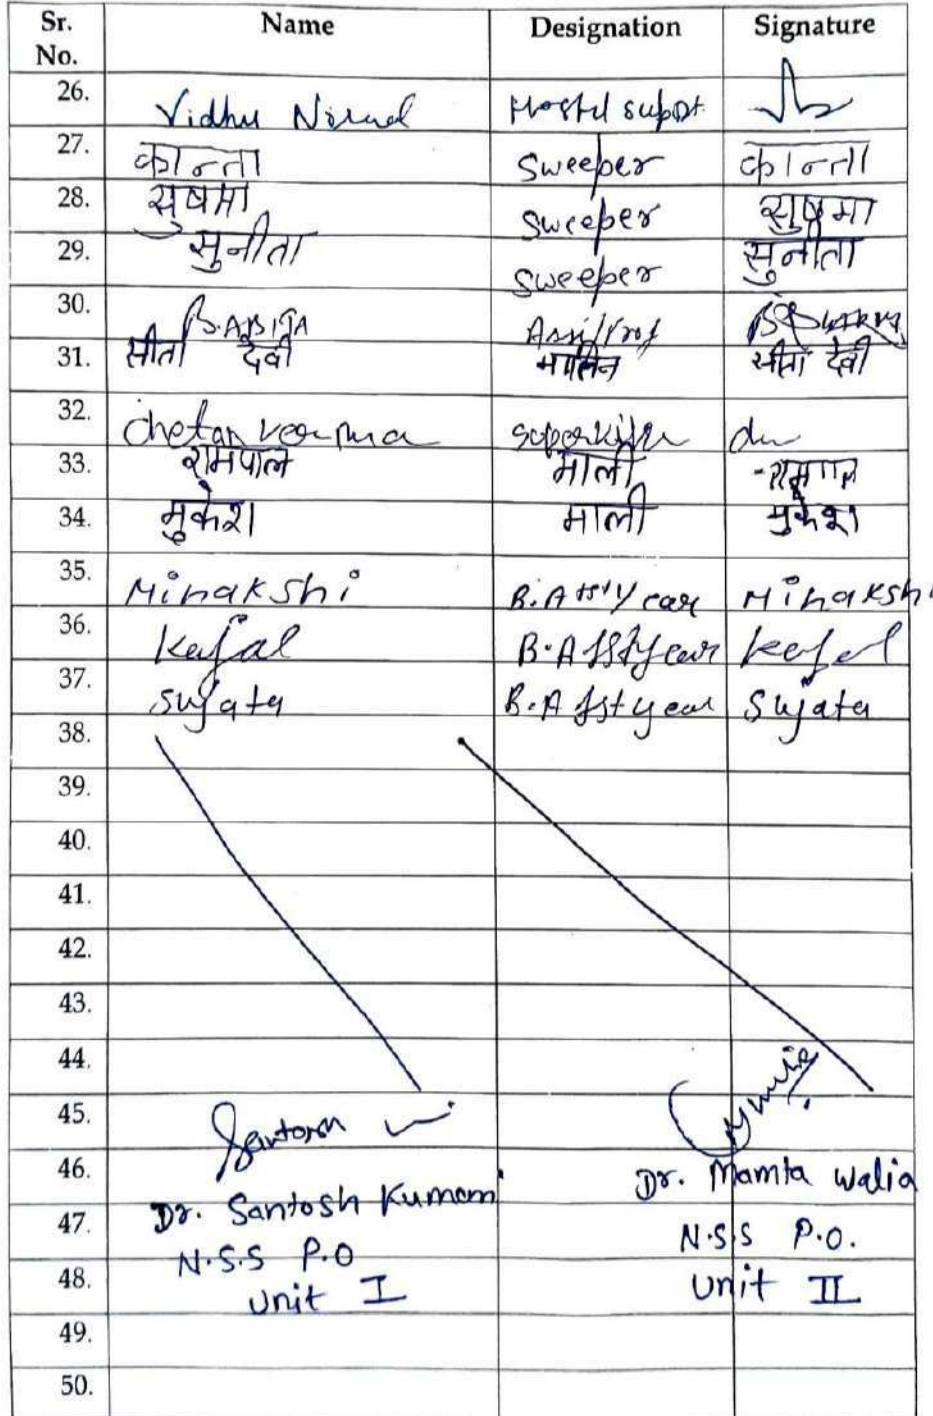 Sr. No. Name Designation Signature
26. Vidhu Hostel supdt.
27. कान्ता Sweeper कान्ता
28. सुषमा Sweeper सुषमा
29. सुनीता Sweeper सुनीता
30. BABITA Assi/Prof
31. सीता देवी मालिन सीता देवी
32. Chetan verma
33. रामपाल माली रामपाल
34. मुकेश माली मुकेश
35. Minakshi B.A Ist Year Minakshi
36. Kajal B.A Ist year Kajal
37. Sujata B.A Ist year Sujata
38.
39.
40.
41.
42.
43.
44.
45. Santosh
46. Dr. Mamta Walia
47. Dr. Santosh Kumari N.S.S P.O.
48. N.S.S P.O Unit II
Unit I
49.
50.